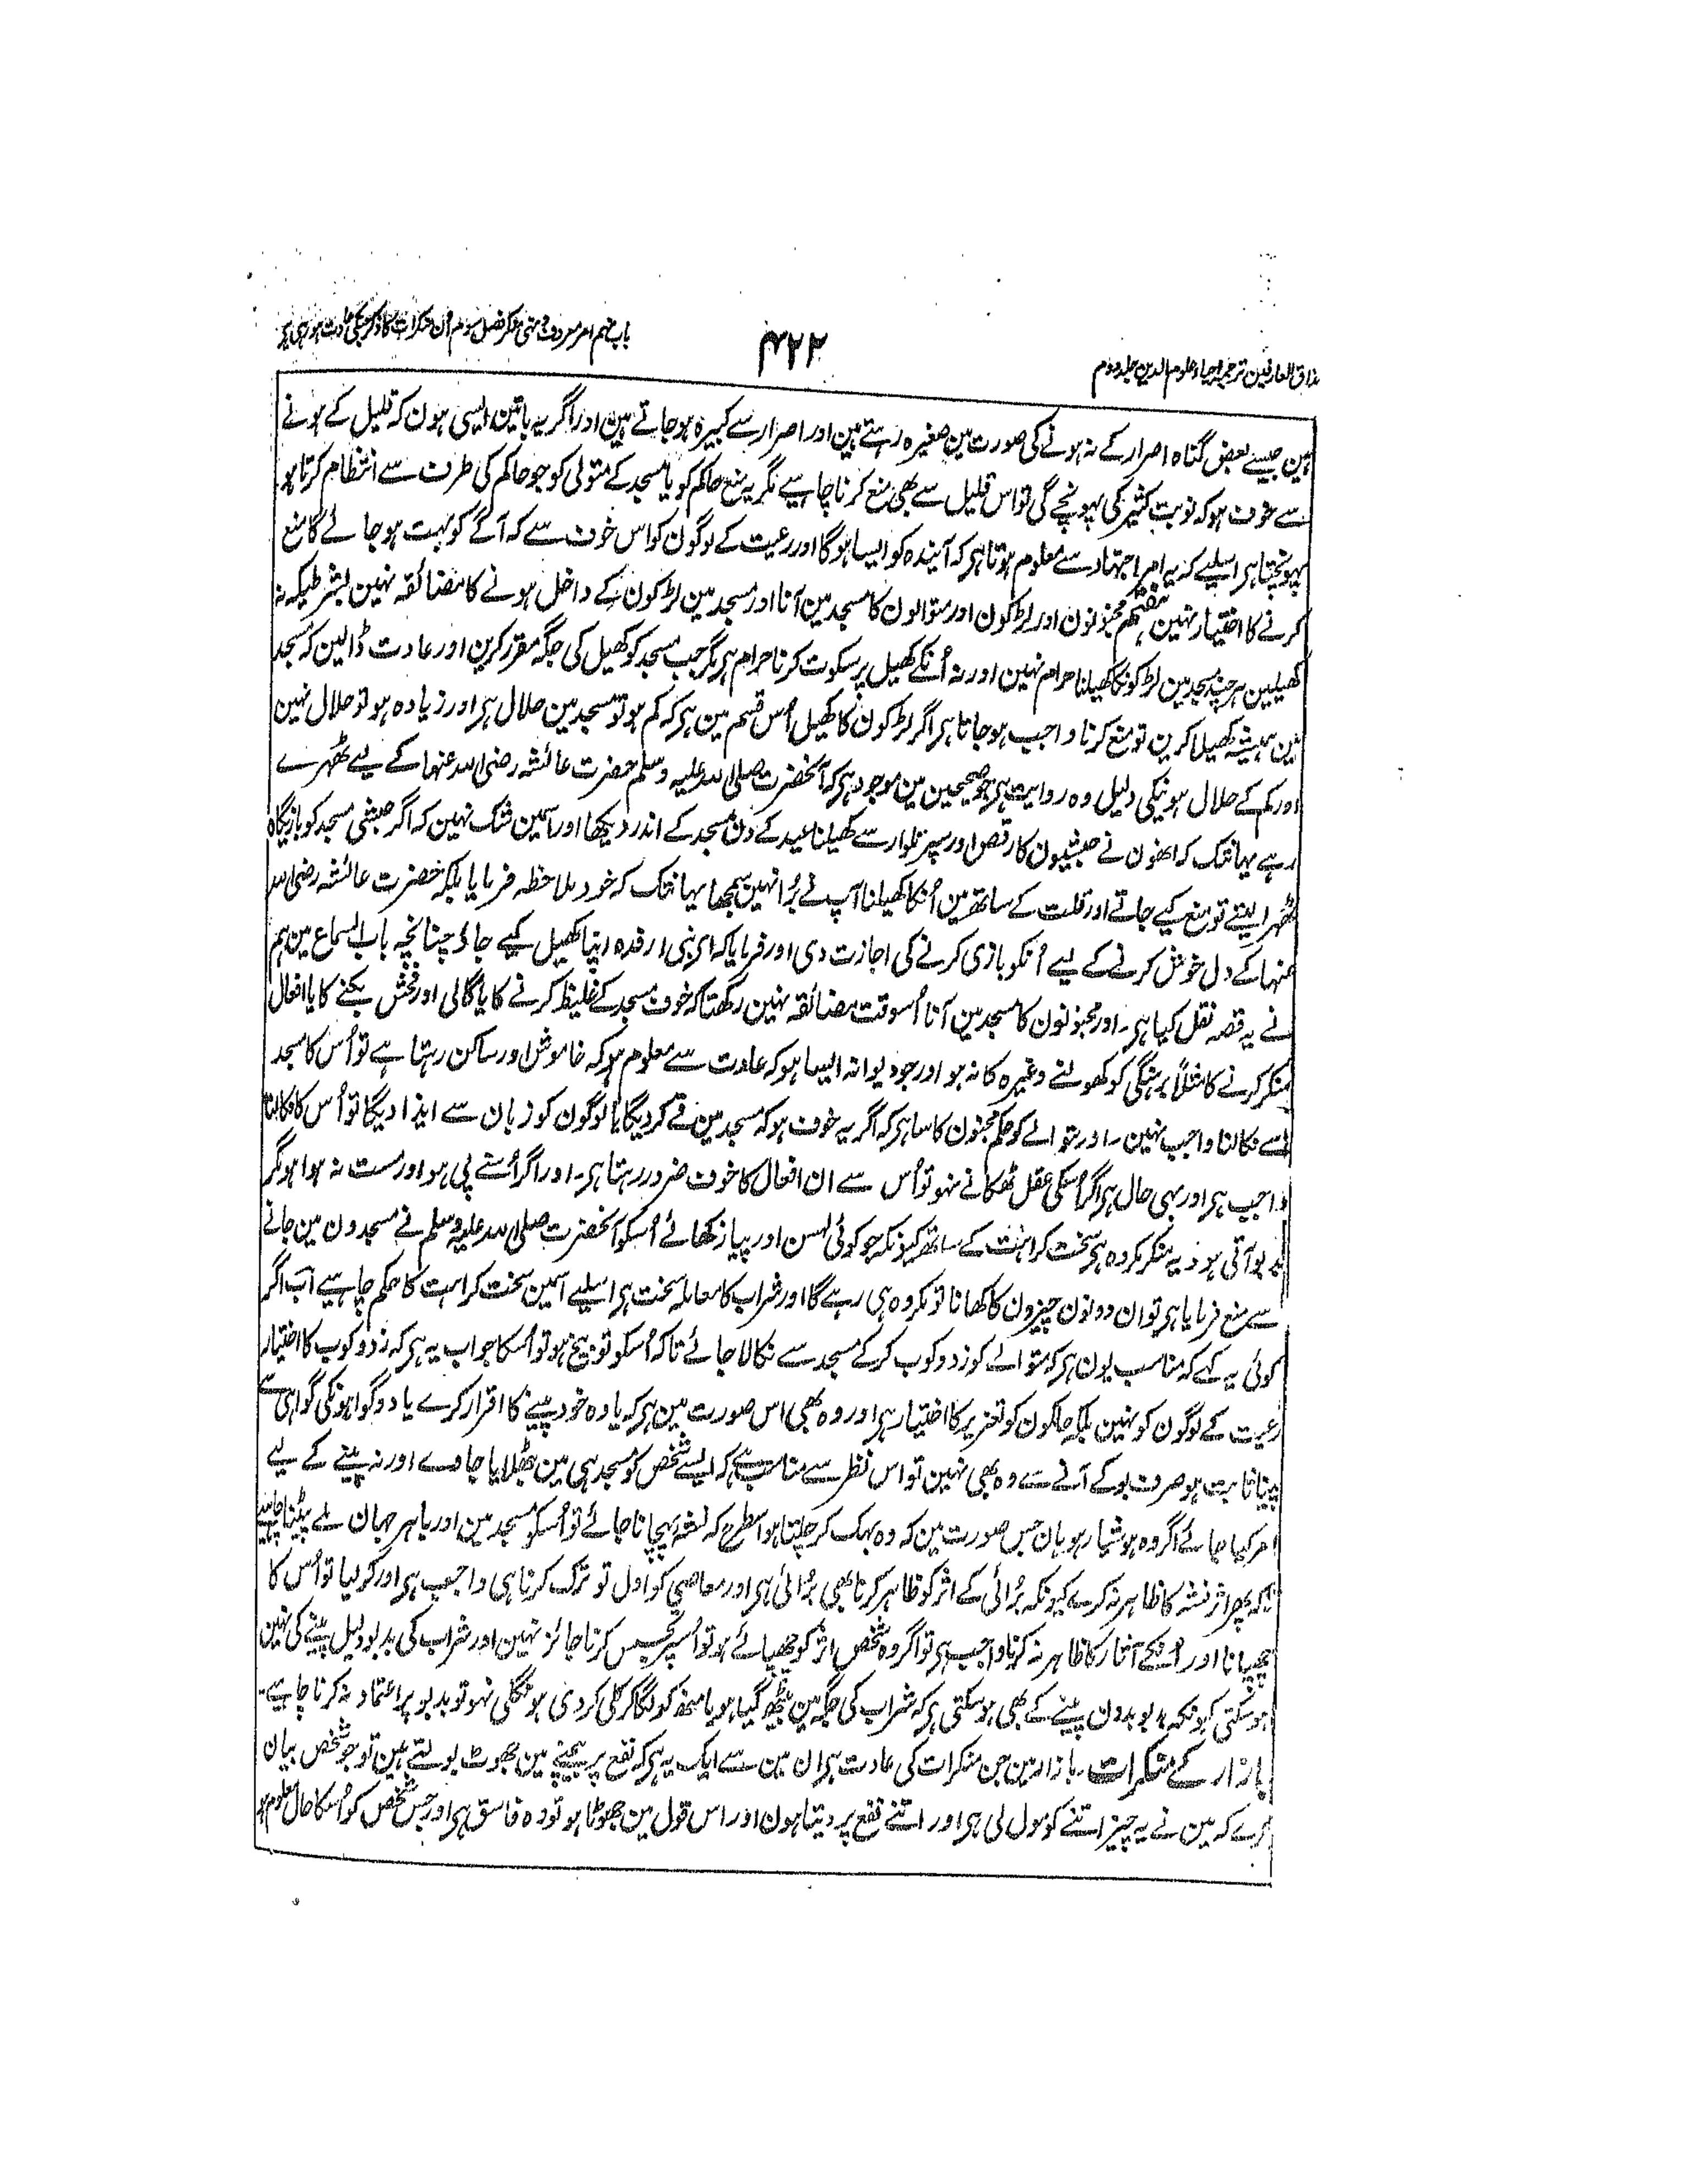 مذاق العارفین ترجمہ احیاء علوم الدین جلد دوم
۴۲۲
باب نہم امر معروف و نہی منکر فصل سوم ان منکرات کا ذکر جنکی عادت ہو رہی ہر
ہین جیسے بعض گناہ اصرار کے نہ ہونے کی صورت مین صغیرہ رہتے ہین اور اصرار سے کبیرہ ہو جاتے ہین اور اگر یہ باتین ایسی ہون کہ قلیل کے ہونے
سے خوف ہو کہ نوبت کثیر کی پہونچے گی تو اس قلیل سے بھی منع کرنا چاہیے مگر یہ منع حاکم کو یا مسجد کے متولی کو جو حاکم کی طرف سے انتظام کرتا ہو
پہونچتا ہر اسلیے کہ یہ امر اجتہاد سے معلوم ہوتا ہر کہ آیندہ کو ایسا ہوگا اور رعیت کے لوگون کو اس خوف سے کہ آگے کو بہت ہو جائے گا منع
کرنے کا اختیار نہین ہفتم مجنونون اور لڑکون اور متوالون کا مسجد مین آنا اور مسجد مین لڑکون کے داخل ہونے کا مضائقہ نہین بشرطیکہ نہ
کھیلین ہر چند مسجد مین لڑکونکا کھیلنا حرام نہین اور نہ اُنکے کھیل پر سکوت کرنا حرام ہر مگر جب مسجد کو کھیل کی جگہ مقرر کرین اور عادت ڈالین کہ مسجد
مین ہمیشہ کھیلا کرین تو منع کرنا واجب ہو جاتا ہر اگر لڑکون کا کھیل اُس قسم مین ہر کہ کم ہو تو مسجد مین حلال ہر اور زیادہ ہو تو حلال نہین
اور کم کے حلال ہونیکی دلیل وہ روایت ہر جو صحیحین مین موجود ہر کہ آنحضرت صلی اللہ علیہ وسلم حضرت عائشہ رضی اللہ عنہا کے لیے ٹھہرے
رہے یہانتک کہ انھون نے حبشیون کا رقص اور سپر تلوار سے کھیلنا عید کے دن مسجد کے اندر دیکھا اور اسمین شک نہین کہ اگر حبشی مسجد کو بازیگاہ
ٹھہرا لیتے تو منع کیے جاتے اور قلت کے ساتھ مین اُنکا کھیلنا آپ نے بُرا نہین سمجھا یہانتک کہ خود ملاحظہ فرمایا بلکہ حضرت عائشہ رضی اللہ
عنہا کے دل خوش کرنے کے لیے اُنکو بازی کرنے کی اجازت دی اور فرمایا کہ ای بنی ارفدہ اپنا کھیل کیے جاؤ چنانچہ باب السماع مین ہم
نے یہ قصہ نقل کیا ہر۔ اور مجنونون کا مسجد مین آنا اُسوقت مضائقہ نہین رکھتا کہ خوف مسجد کے غلیظ کرنے کا یا گالی اور فحش بکنے کا یا افعال
منکر کرنے کا مثلاً برہنگی کو کھولنے وغیرہ کا نہ ہو اور جو دیوانہ ایسا ہو کہ عادت سے معلوم ہو کہ خاموش اور ساکن رہتا ہے تو اُس کا مسجد
سے نکالنا واجب نہین۔ اور متوالے کو حکم مجنون کا سا ہر کہ اگر یہ خوف ہو کہ مسجد مین قے کر دیگا یا لوگون کو زبان سے ایذا دیگا تو اُس کا نکالنا
واجب ہر اور یہی حال ہر اگر اُسکی عقل ٹھکانے نہو تو اُس سے ان افعال کا خوف ضرور رہتا ہر۔ اور اگر اُسنے پی ہو اور مست نہ ہوا ہو مگر
بدبو آتی ہو تو یہ منکر مکروہ ہر سخت کراہت کے ساتھ کیونکہ جو کوئی لہسن اور پیاز کھائے اُسکو آنحضرت صلی اللہ علیہ وسلم نے مسجدون مین جانے
سے منع فرمایا ہر تو ان دونون چیزون کا کھانا تو مکروہ ہی رہے گا اور شراب کا معاملہ سخت ہر اسلیے اسمین سخت کراہت کا حکم چاہیے اب اگر
کوئی یہ کہے کہ مناسب یون ہر کہ متوالے کو زد و کوب کر کے مسجد سے نکالا جائے تاکہ اُسکو توبیخ ہو تو اُسکا جواب یہ ہر کہ زد و کوب کا اختیار
رعیت کے لوگون کو نہین بلکہ حاکمون کو تعزیر کا اختیار ہر اور وہ بھی اس صورت مین ہر کہ یا وہ خود پینے کا اقرار کرے یا دو گواہونکی گواہی سے
پینا ثابت ہو صرف بو کے آنے سے وہ بھی نہین تو اس نظر سے مناسب ہے کہ ایسے شخص کو مسجد ہی مین بٹھلایا جاوے اور نہ پینے کے لیے
امر کیا جائے اگر وہ ہوشیار ہو ہان جس صورت مین کہ وہ بہک کر چلتا ہو اسطرح کہ نشہ پہچانا جائے تو اُسکو مسجد مین اور باہر جہان ملے پیٹنا چاہیے
تاکہ پھر اثر نشہ کا ظاہر نہ کرے کیونکہ بُرائی کے اثر کو ظاہر کرنا بھی بُرائی ہر اور معاصی کو اول تو ترک کرنا ہی واجب ہر اور کر لیا تو اُس کا
چھپانا اور اُسکے آثار کا ظاہر نہ کرنا واجب ہر تو اگر وہ شخص اثر کو چھپائے ہو تو اُسپر تجسس کرنا جائز نہین اور شراب کی بدبو دلیل پینے کی نہین
ہو سکتی کیونکہ بدبو بدون پینے کے بھی ہو سکتی ہر کہ شراب کی جگہ مین بیٹھ گیا ہو یا منھ کو لگا کر کلی کر دی ہو نگلی نہو تو بدبو پر اعتماد نہ کرنا چاہیے۔
بازار کے منکرات۔ بازار مین جن منکرات کی عادت ہر ان مین سے ایک یہ ہر کہ نفع پر بیچنے مین جھوٹ بولتے ہین تو جو شخص بیان
کرے کہ مین نے یہ چیز اتنے کو مول لی ہر اور اتنے نفع پر دیتا ہون اور اس قول مین جھوٹا ہو تو وہ فاسق ہر اور جس شخص کو اُسکا حال معلوم ہو